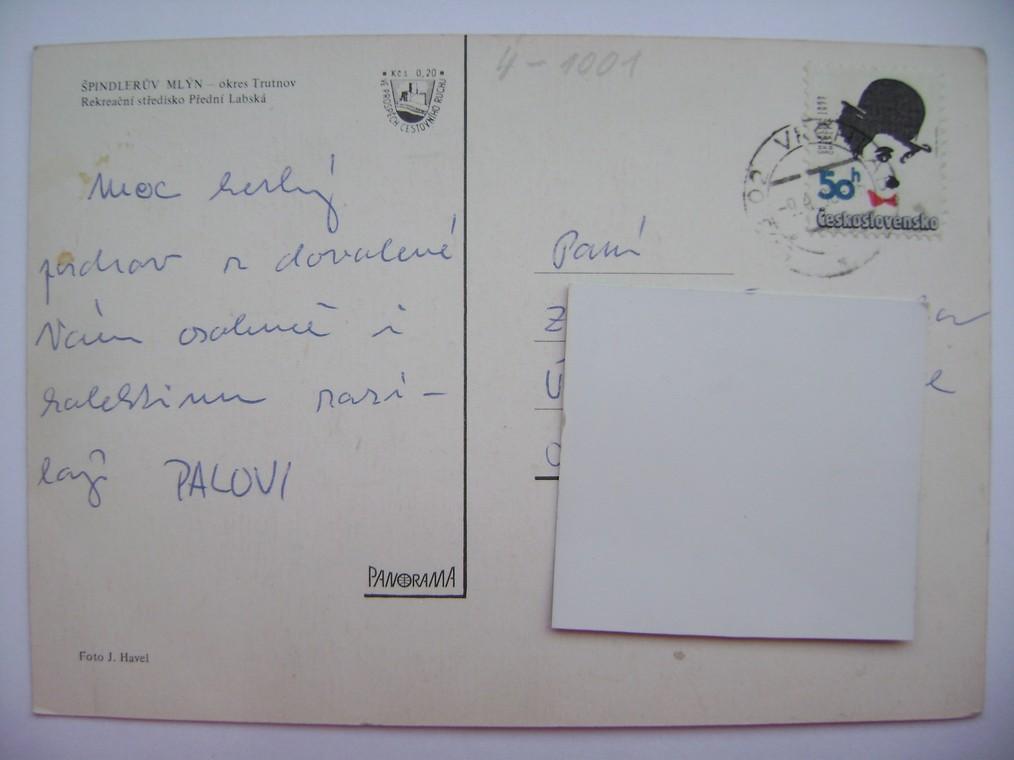 4-1001
ŠPINDLERŮV MLÝN – okres Trutnov
Rekreační středisko Přední Labská
Kčs 0,20
VE PROSPĚCH CESTOVNÍHO RUCHU
50h
Československo
Moc hezký
pozdrav z dovolené
Vám osobně i
kolektivu posí-
lají PALOVI
Paní
PANORAMA
Foto J. Havel